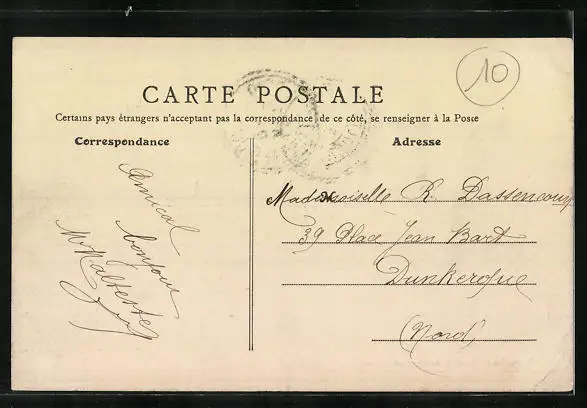 10
CARTE POSTALE
Certains pays étrangers n'acceptant pas la correspondance de ce côté, se renseigner à la Poste
Correspondance
Adresse
Amical
bonjour
Mademoiselle R. Dassencourt
39 Place Jean Bart
Dunkerque
(Nord)